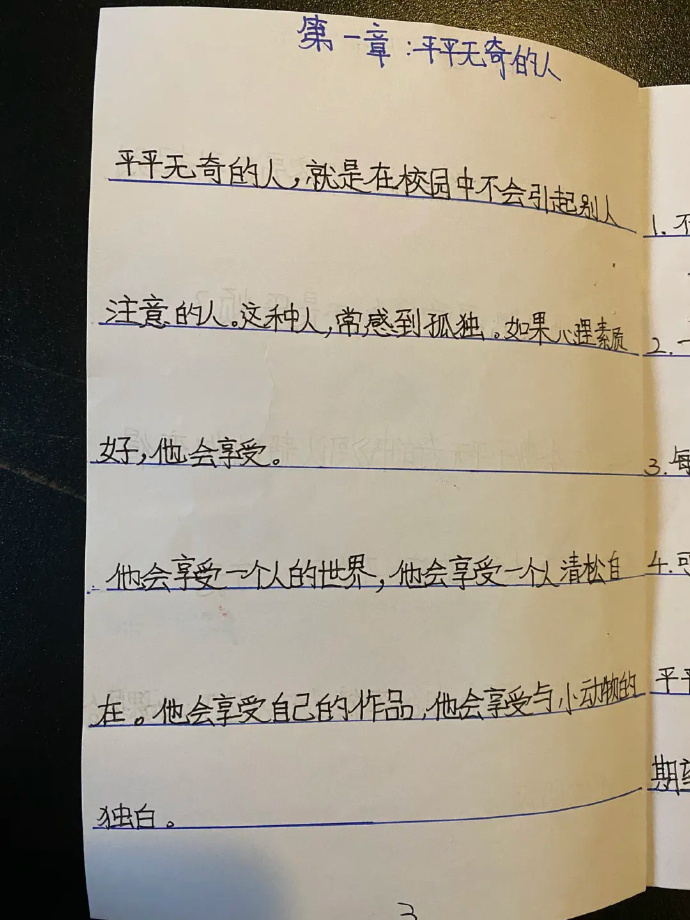 第一章:平平无奇的人
平平无奇的人,就是在校园中不会引起别人
注意的人。这种人,常感到孤独。如果心理素质
好,他会享受。
他会享受一个人的世界,他会享受一个人清松自
在。他会享受自己的作品,他会享受与小动物的
独白。
3
1.不
2.一
3.每
4.可
平平
期望